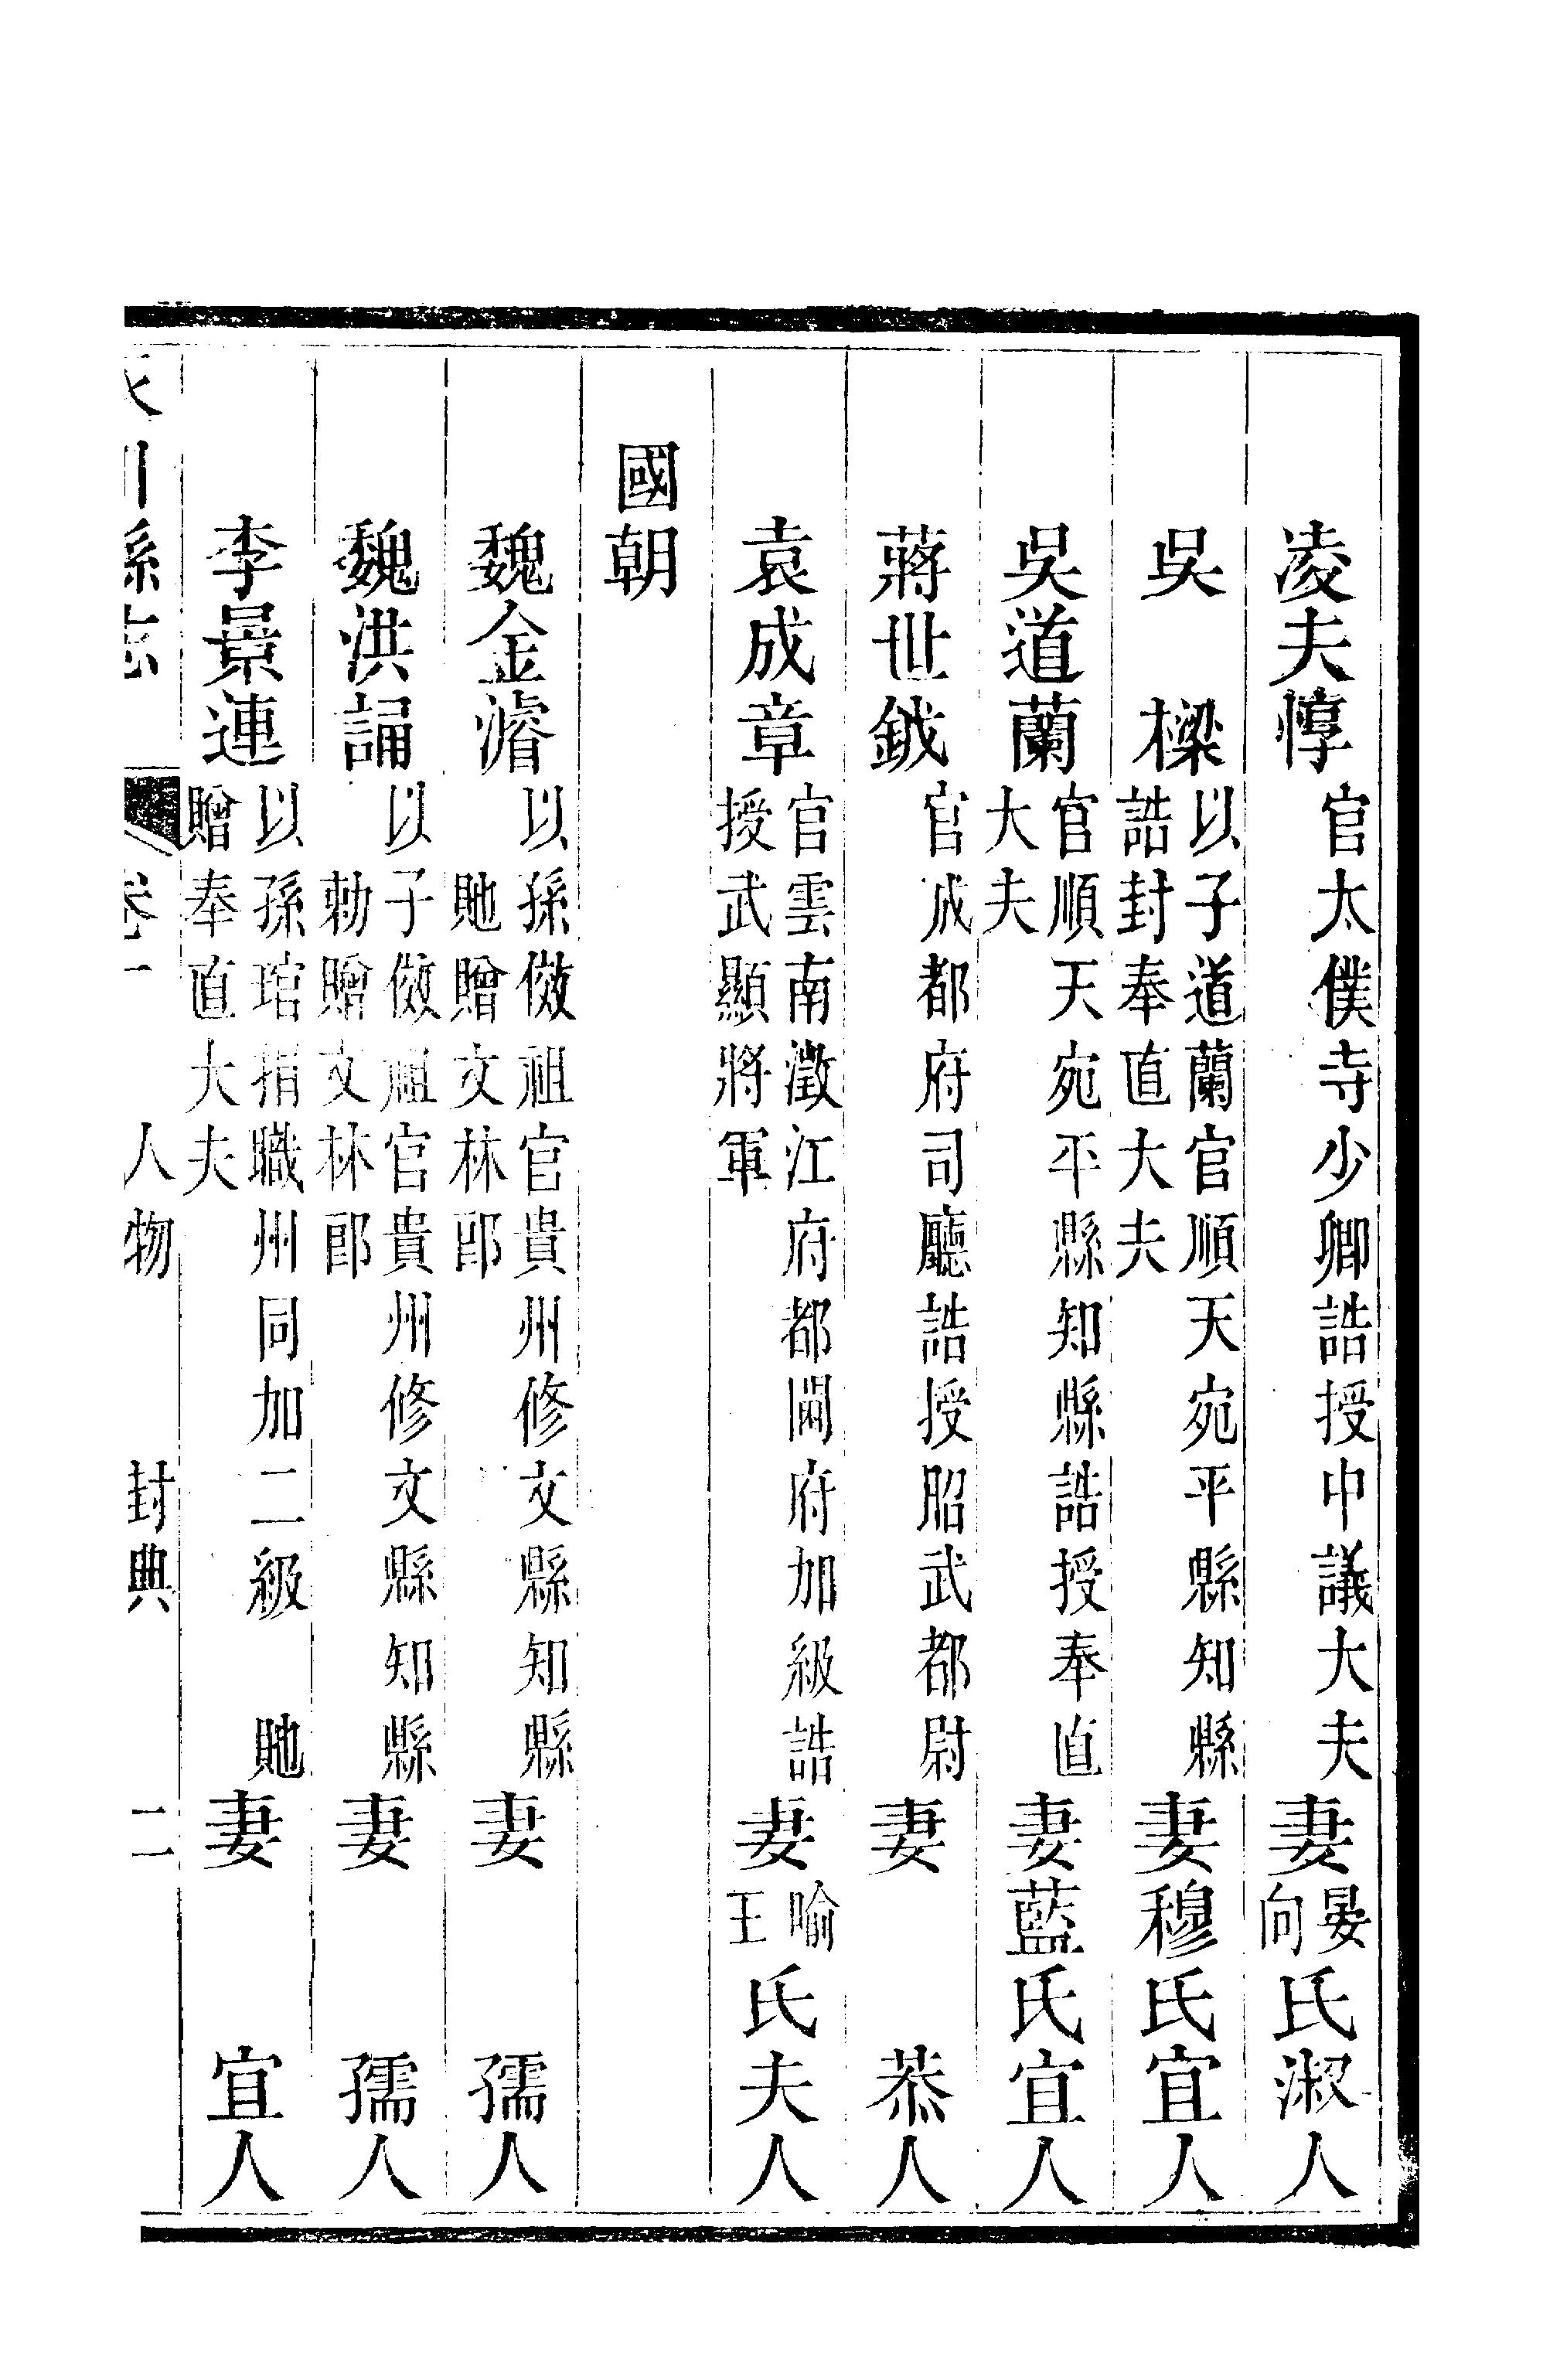 凌夫惇官太僕寺少卿誥授中議大夫妻晏向氏淑人
吳樑以子道蘭官順天宛平縣知縣誥封奉直大夫妻穆氏宜人
吳道蘭官順天宛平縣知縣誥授奉直大夫妻藍氏宜人
蔣世鉞官成都府司廳誥授昭武都尉妻恭人
袁成章官雲南澂江府都閫府加級誥授武顯將軍妻喻王氏夫人
國朝
魏金濬以孫儆祖官貴州修文縣知縣貤贈文林郎妻孺人
魏洪誦以子儆祖官貴州修文縣知縣勅贈文林郎妻孺人
李景連以孫琯捐職州同加二級貤贈奉直大夫妻宜人
川縣志 卷 人物 封典 二